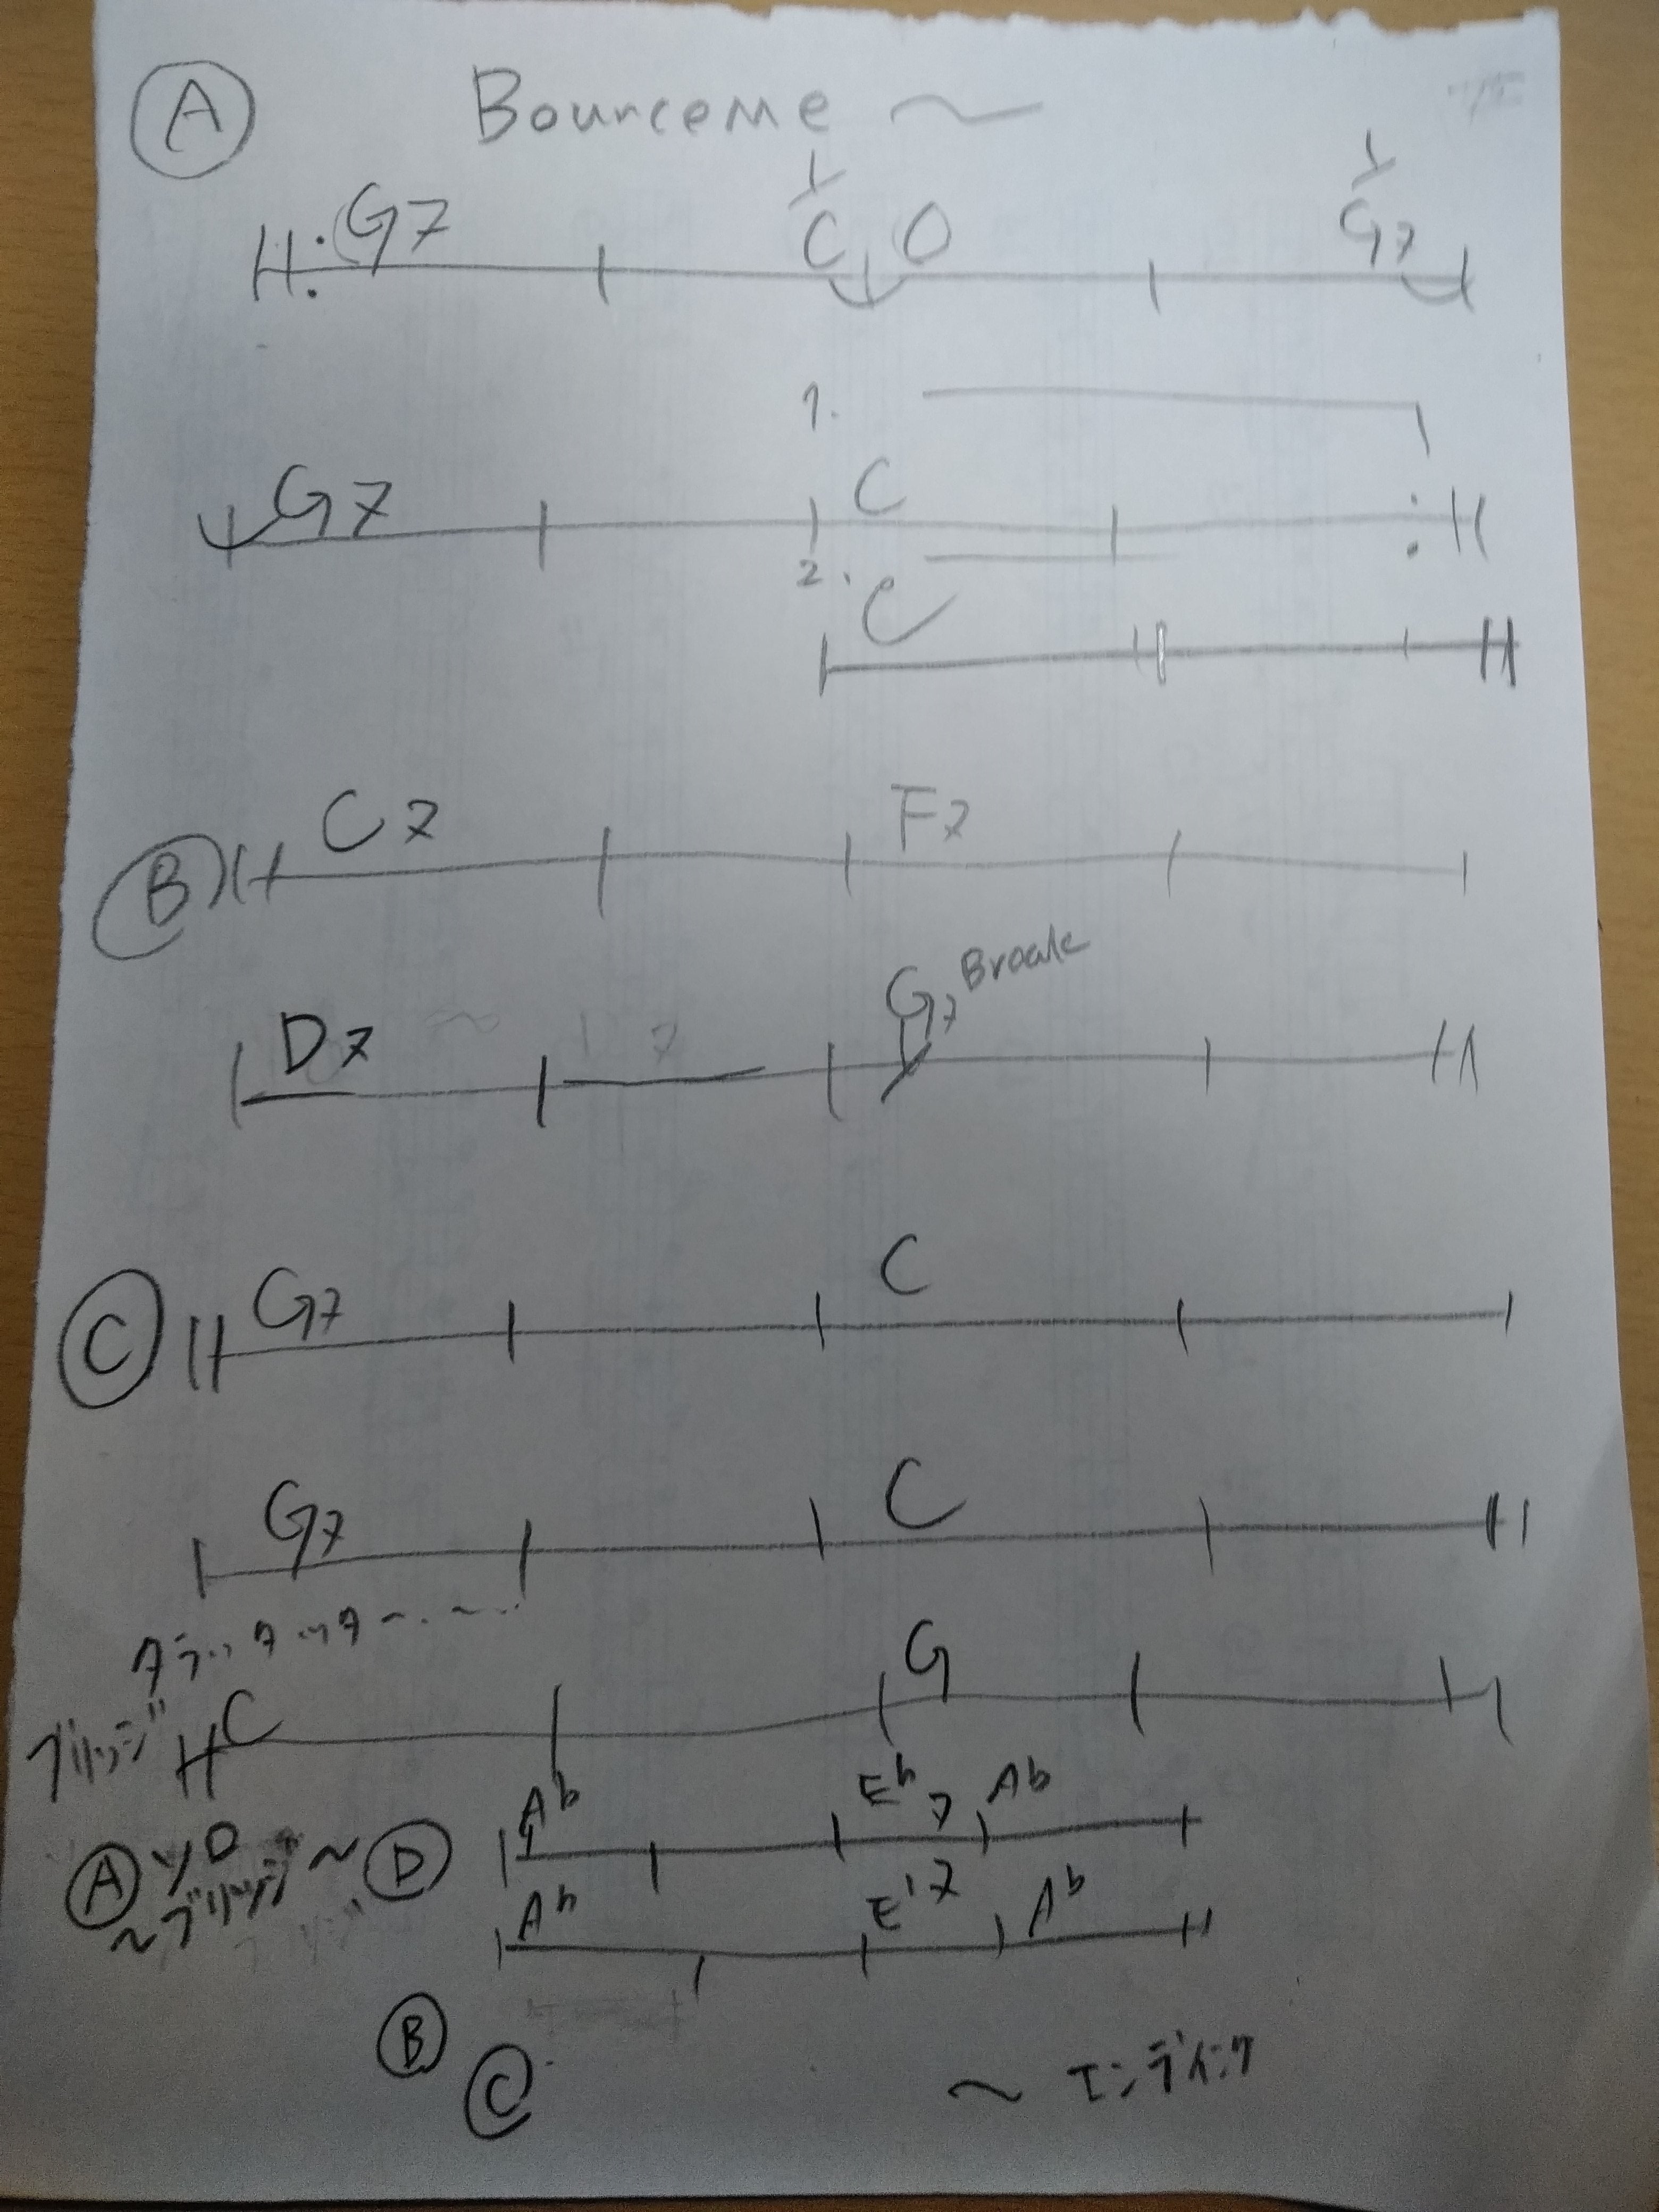 A Bounceme ~
G7 C O G7
1.
G7 C
2. C
B C7 F7
D7 G7 Break
C G7 C
G7 C
タラッタッタ〜..〜...
ブリッジ C G
Ab Eb7 Ab
A ソロ ~ D
~ブリッジ
Ab Eb7 Ab
B
C ~ エンディング